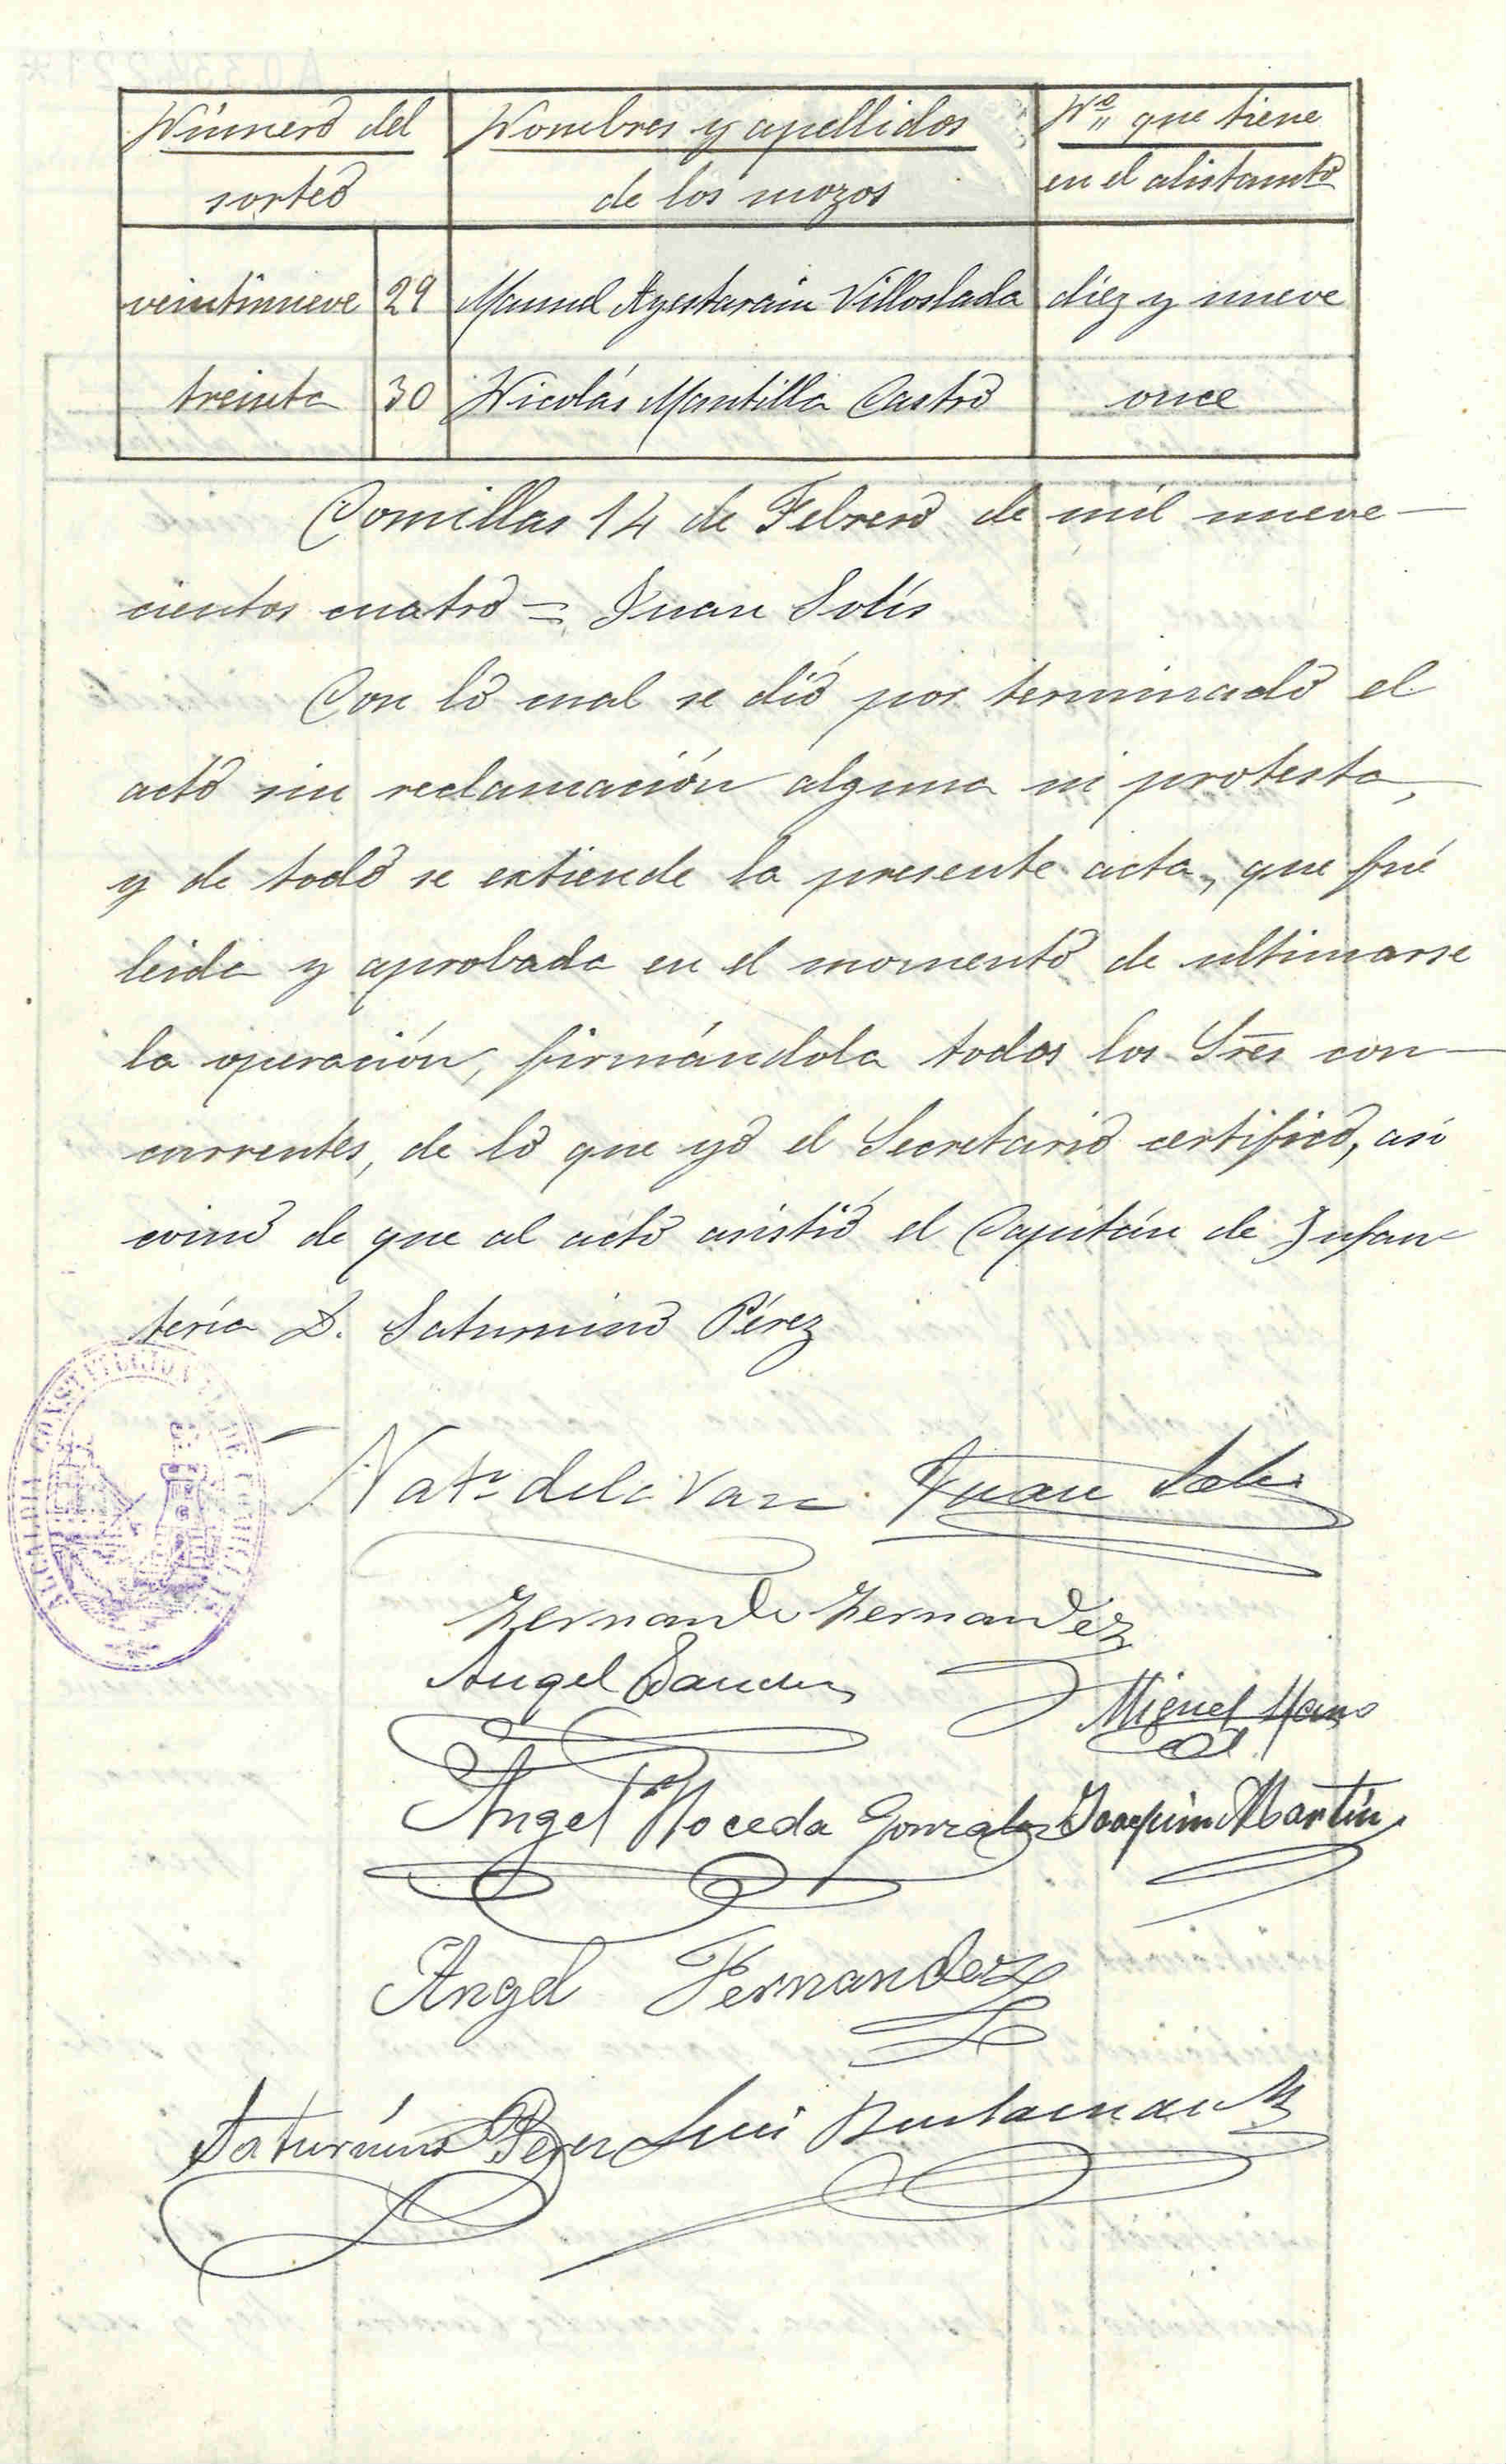 Número del | Nombres y apellidos | Nº que tiene
sorteo | de los mozos | en el alistamto
veintinueve | 29 | Manuel Ayestarain Villoslada | diez y nueve
treinta | 30 | Nicolás Mantilla Castro | once
Comillas 14 de Febrero de mil nueve—
cientos cuatro = Juan Solís
Con lo cual se dió por terminado el
acto sin reclamación alguna ni protesta,
y de todo se extiende la presente acta, que fué
leida y aprobada en el momento de ultimarse
la operación, firmándola todos los Sres con—
currentes, de lo que yo el Secretario certifico, asi
como de que al acto asistió el Capitán de Infan
tería D. Saturnino Pérez
ALCALDIA CONSTITUCIONAL DE COMILLAS
Juan Solis
Fernando Fernandez
Angel Sanchez
Miguel
Angel Noceda Gonzalez Joaquin Martín
Angel Fernandez
Saturnino Perez Luis Bustamante